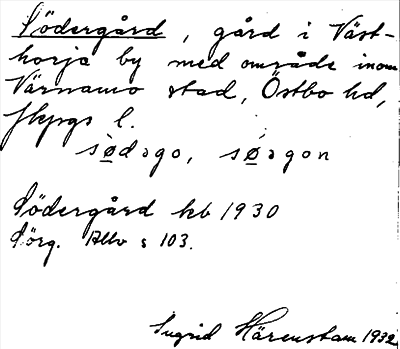 Södergård, gård i Väst-
horja by med område inom
Värnamo stad, Östbo hd,
Jkpgs l.
sødəgo, søəgon
Södergård kb 1930
Sörg. Allv s 103.
Ingrid Härenstam 1932